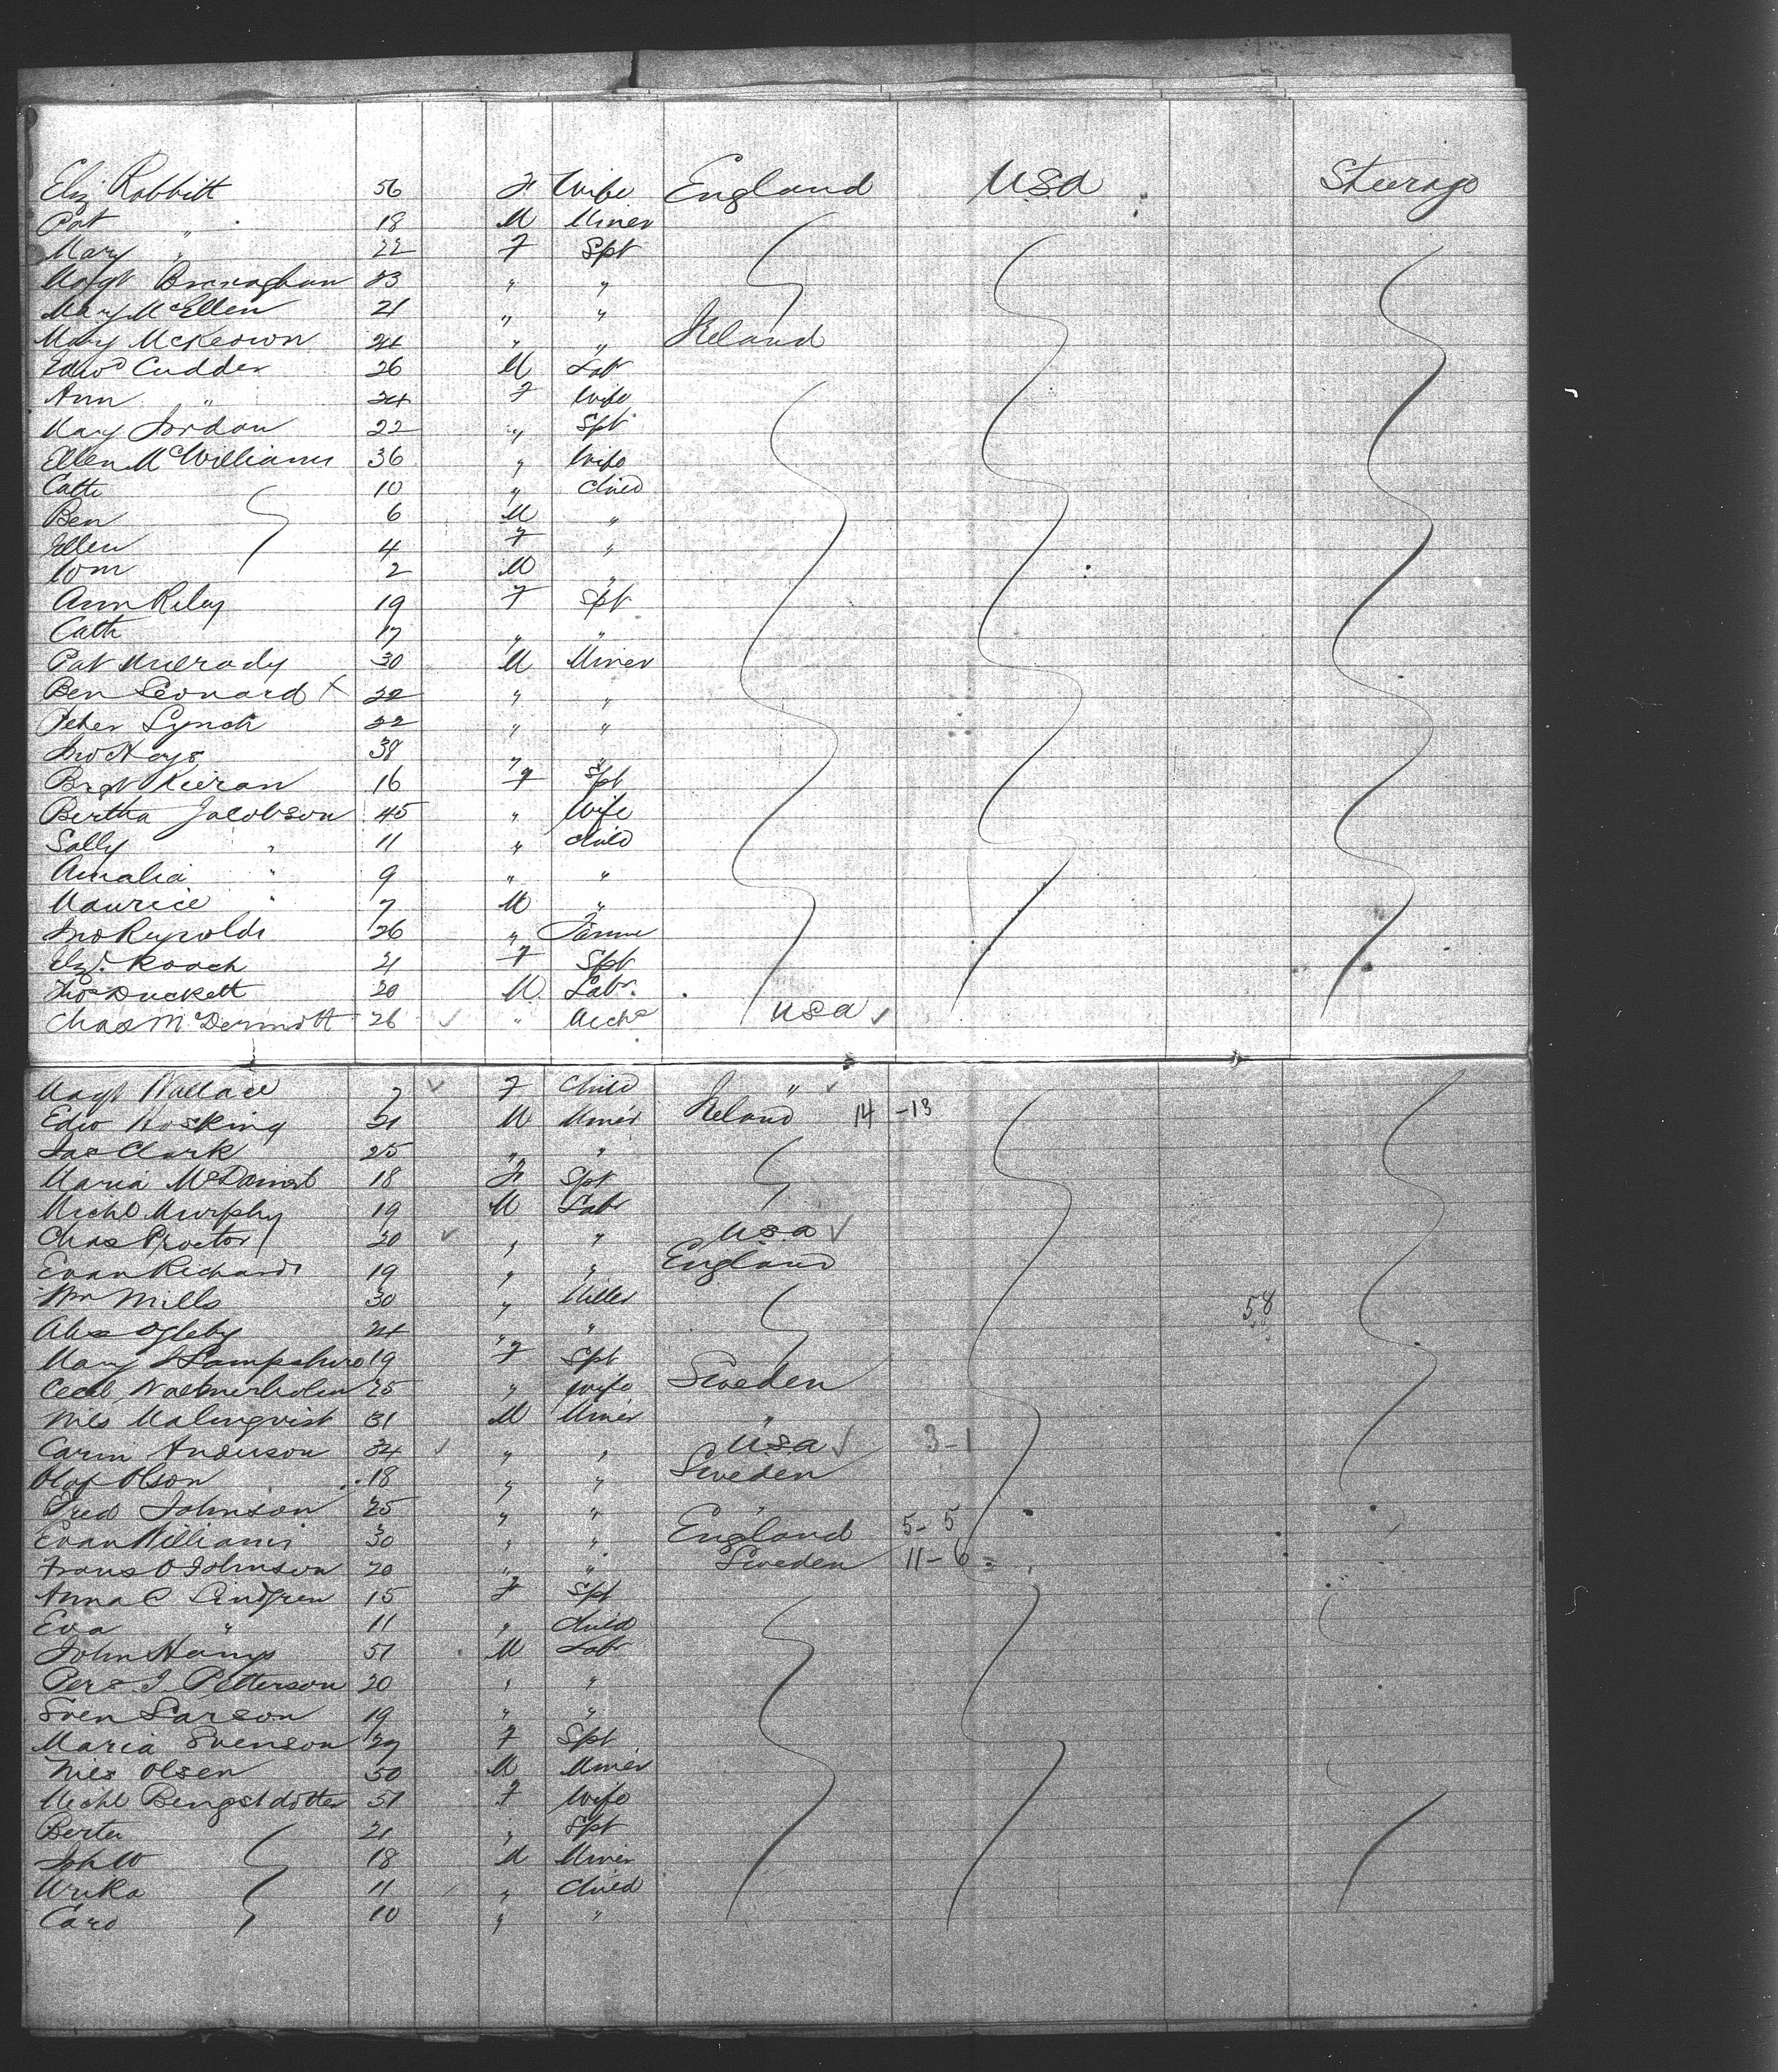 Eliz Rabbitt 56 F Wife England USA Steerage
Pat " 18 M Miner
Mary " 22 F Spt
Margt 23 " "
Mary McEllen 21 " "
Mary McKeown 24 " " Ireland
Edwd Cudder 26 M Labr
Ann " 24 F Wife
Mary Jordan 22 " Spt
Ellen McWilliams 36 " Wife
Cath 10 " Child
Ben 6 M "
Ellen 4 F "
Wm 2 M "
Ann Riley 19 F Spt
Cath 17 " "
Pat Mulrady 30 M Miner
Ben Leonard X 22 " "
Peter Lynch 22 " "
Jno Hays 38 " "
Brgt Kieran 16 F Spt
Bertha Jacobson 45 " Wife
Sally " 11 " Child
Amalia " 9 " "
Maurice " 7 M "
Jno Reynolds 26 "
Eliz. Roach 21 F Spt
Thos Duckett 20 M Labr.
Chas McDermott 26 ✓ " USA ✓
Margt Wallace 7 ✓ F Child " ✓
Edw Hosking 31 M Miner Ireland 14-13
Jas Clark 25 " "
Maria 18 F Spt
Michl Murphy 19 M Labr
Chas Proctor 20 ✓ " " USA ✓
Evan Richards 19 " " England
Wm Mills 30 " Miller
Alex Ogleby 24 " " 58
Mary 19 F Spt
Cecil 25 " Wife Sweden
Nils Malmqvist 31 M Miner "
Carin Anderson 34 ✓ " " USA ✓ 3-1
Olof Olson 18 " " Sweden
Fred Johnson 25 " " "
Evan Williams 30 " " England 5-5
Frans O Johnson 20 " " Sweden 11-6
Anna C Lindgren 15 F Spt
Eva " 11 " Child
John 51 M Labr
Pers J Petterson 20 " "
Sven Larson 19 " "
Maria Svenson 29 F Spt
Nils Olsen 50 M Miner
Michl Bengstdotter 51 F Wife
Berta 21 " Spt
18 M Miner
11 " Child
Caro 10 " "